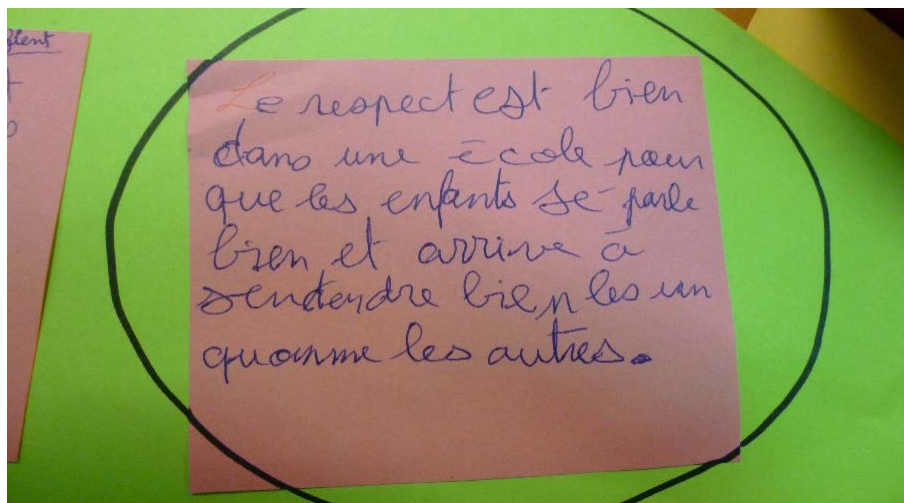 Le respect est bien
dans une école pour
que les enfants se parle
bien et arrive à
sentendre bien les un
quomme les autres.